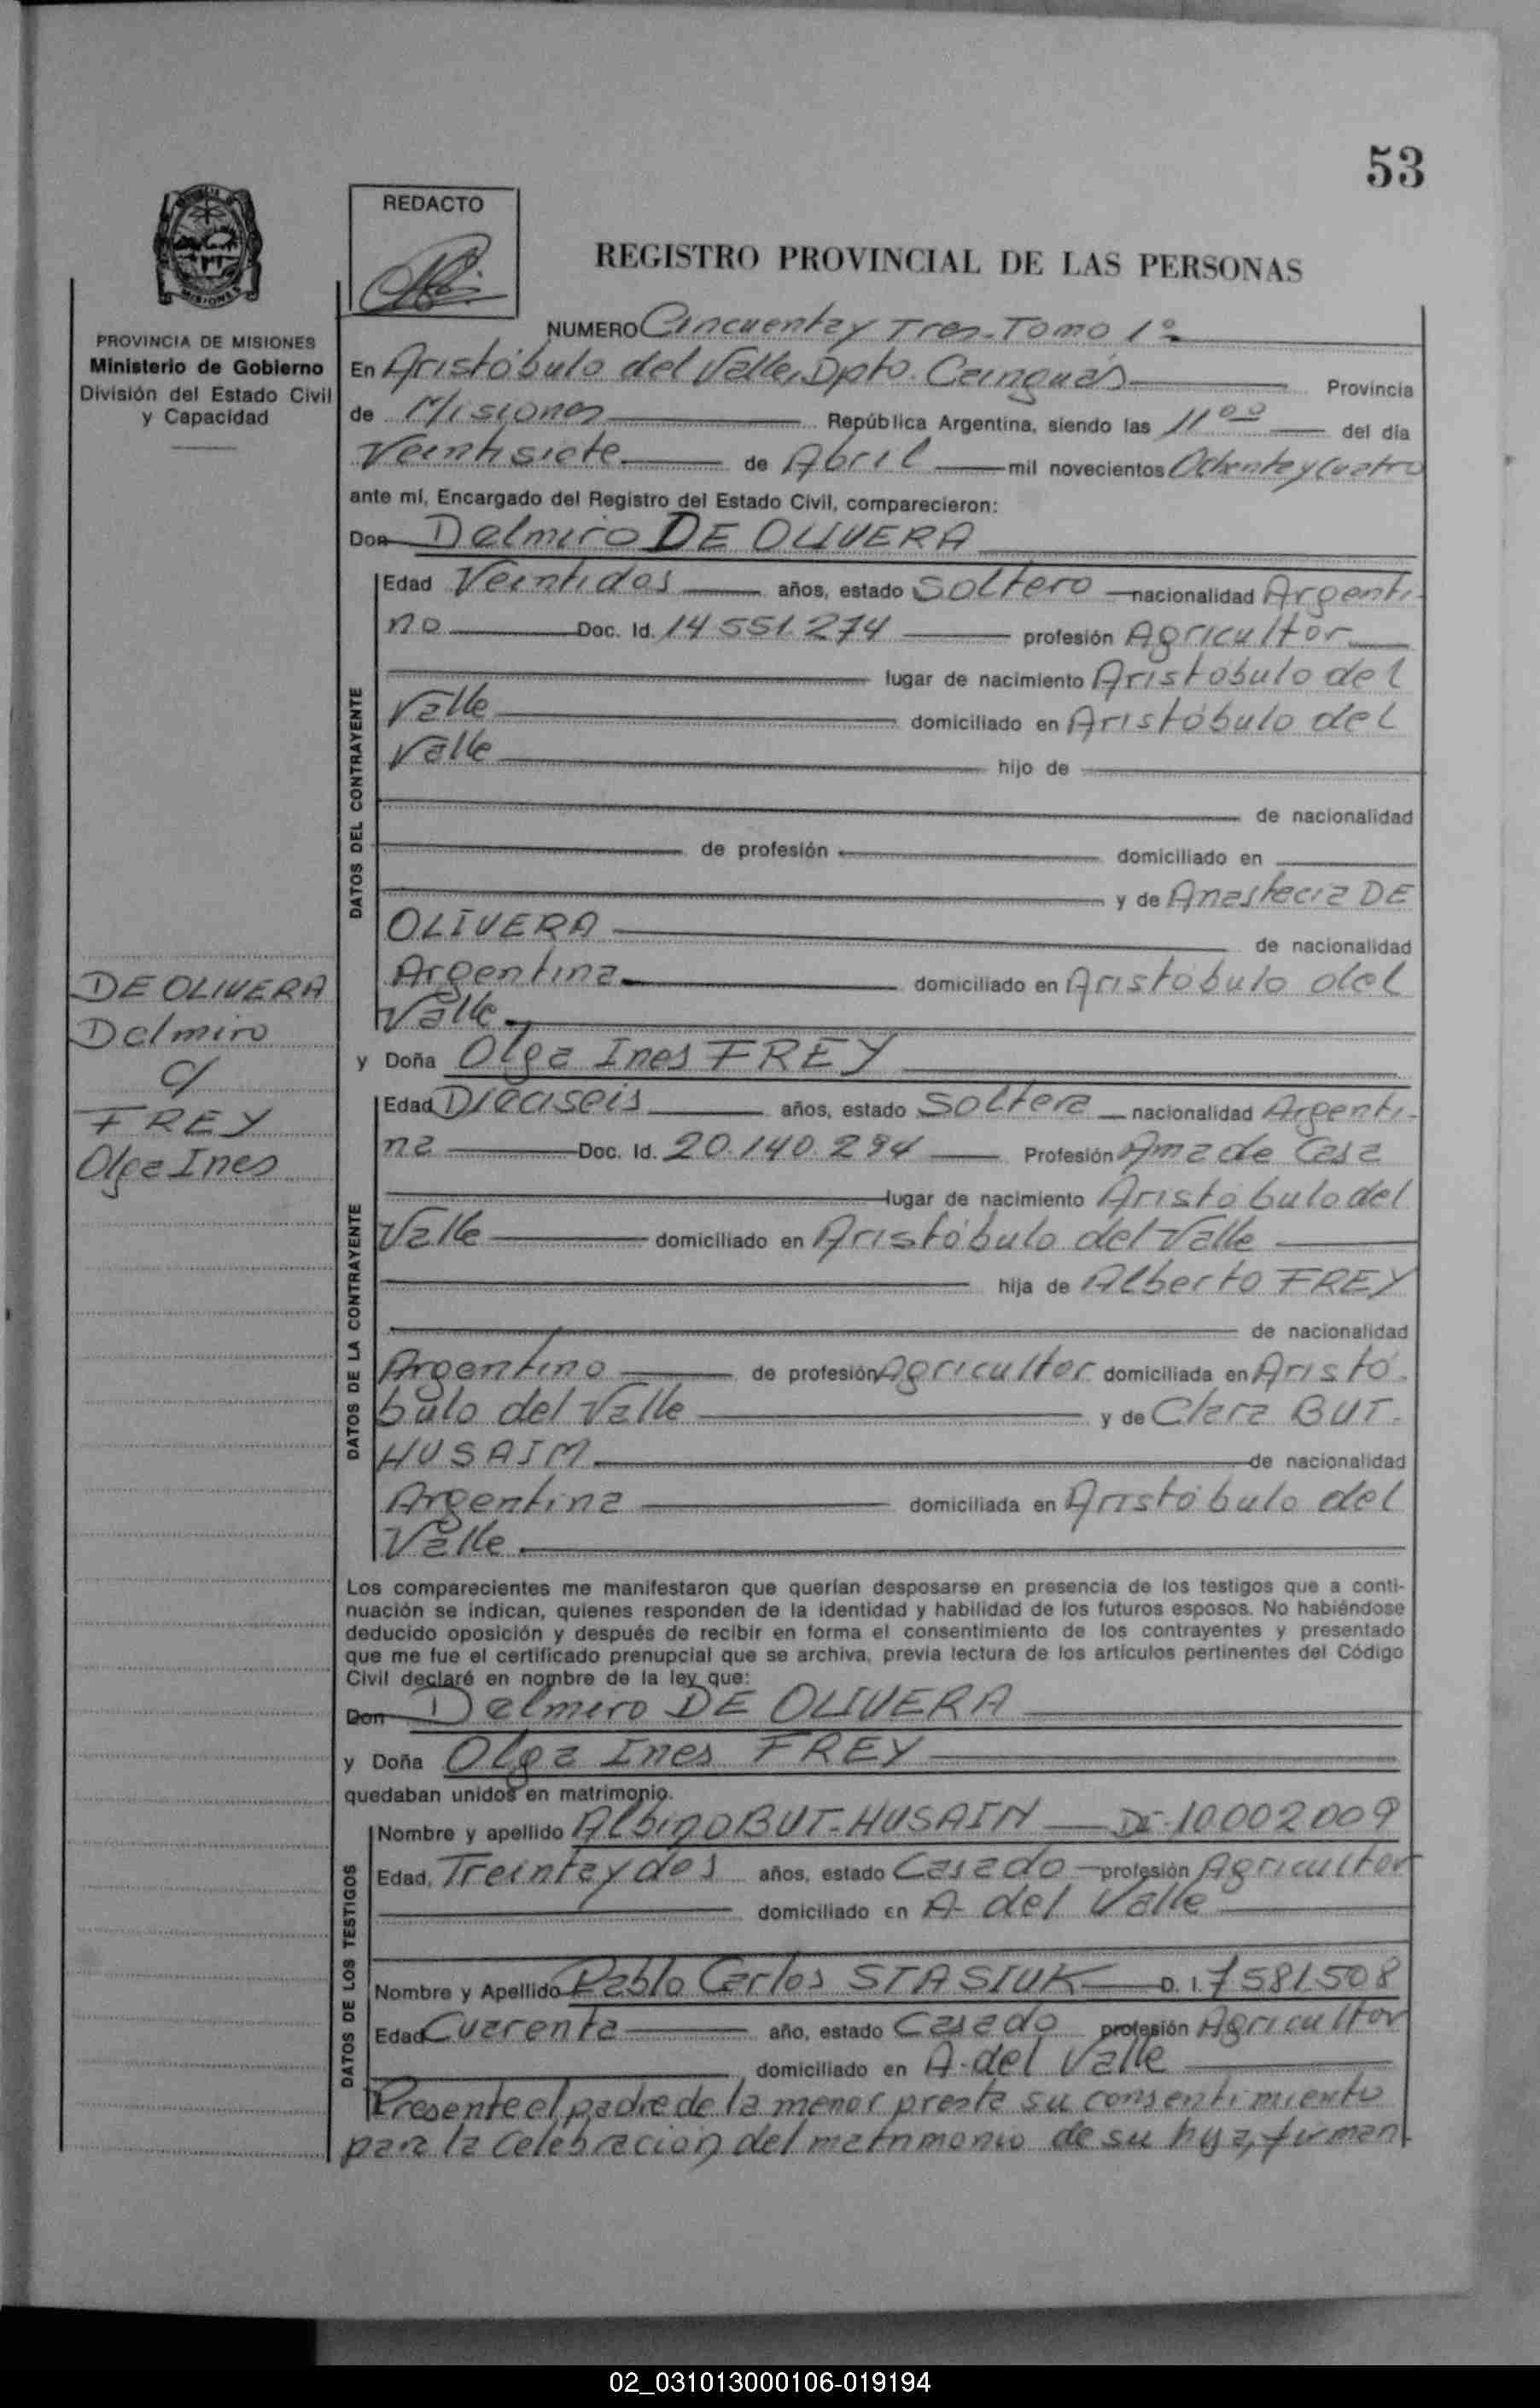 53
REDACTO
REGISTRO PROVINCIAL DE LAS PERSONAS
MISIONES
PROVINCIA DE MISIONES
Ministerio de Gobierno
División del Estado Civil
y Capacidad
NUMERO Cincuenta y Tres - Tomo 1º
En Aristóbulo del Valle, Dpto. Cainguás Provincia
de Misiones República Argentina, siendo las 11 00 del día
Veintisiete de Abril mil novecientos Ochenta y Cuatro
ante mí, Encargado del Registro del Estado Civil, comparecieron:
Don Delmiro DE OLIVERA
DATOS DEL CONTRAYENTE
Edad Veintidos años, estado Soltero nacionalidad Argenti-
no Doc. Id. 14 551.274 profesión Agricultor
lugar de nacimiento Aristóbulo del
Valle domiciliado en Aristóbulo del
Valle hijo de
de nacionalidad
de profesión domiciliado en
y de Anastacia DE
OLIVERA de nacionalidad
Argentina domiciliado en Aristóbulo del
Valle
DE OLIVERA
Delmiro
c/
FREY
Olga Ines
y Doña Olga Ines FREY
DATOS DE LA CONTRAYENTE
Edad Dieciseis años, estado Soltera nacionalidad Argenti-
na Doc. Id. 20.140.294 Profesión Ama de Casa
lugar de nacimiento Aristóbulo del
Valle domiciliado en Aristóbulo del Valle
hija de Alberto FREY
de nacionalidad
Argentino de profesión Agricultor domiciliada en Aristó-
bulo del Valle y de Clara BUT-
HUSAIM de nacionalidad
Argentina domiciliada en Aristóbulo del
Valle
Los comparecientes me manifestaron que querían desposarse en presencia de los testigos que a conti-
nuación se indican, quienes responden de la identidad y habilidad de los futuros esposos. No habiéndose
deducido oposición y después de recibir en forma el consentimiento de los contrayentes y presentado
que me fue el certificado prenupcial que se archiva, previa lectura de los artículos pertinentes del Código
Civil declaré en nombre de la ley que:
Don Delmiro DE OLIVERA
y Doña Olga Ines FREY
quedaban unidos en matrimonio.
DATOS DE LOS TESTIGOS
Nombre y apellido Albino BUT-HUSAIN DI-10.002.009
Edad, Treinta y dos años, estado Casado profesión Agricultor
domiciliado en A- del Valle
Nombre y Apellido Pablo Carlos STASIUK D.I. 7.581.508
Edad Cuarenta año, estado Casado profesión Agricultor
domiciliado en A. del Valle
Presente el padre de la menor presta su consentimiento
para la celebración del matrimonio de su hija, firman
02_031013000106-019194